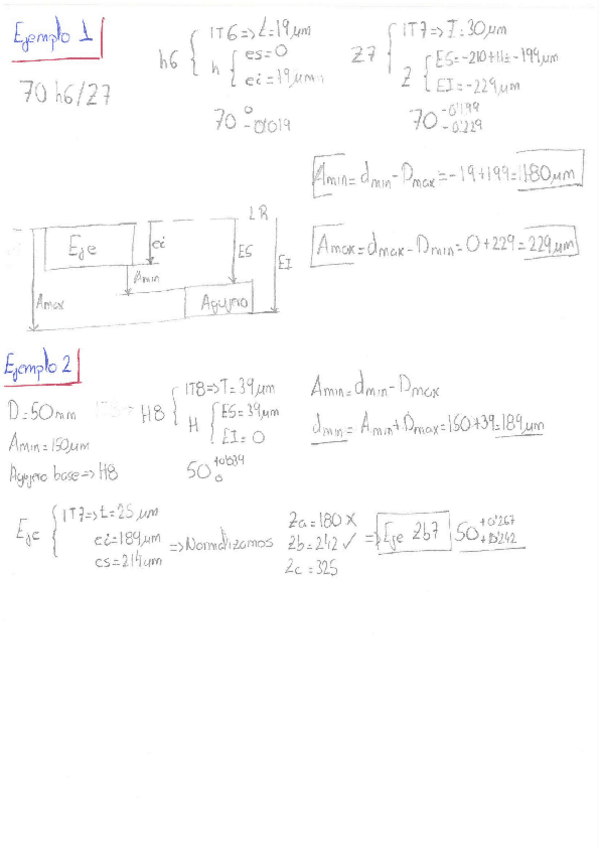 Ejemplo 1
70 h6/Z7
h6 { IT6 => t = 19 μm
h { es = 0
ei = 19 μm
70 0 -0'019
Z7 { IT7 => T = 30 μm
Z { ES = -210 + 11 = -199 μm
EI = -229 μm
70 -0'199 -0'229
Amin = dmin - Dmax = -19 + 199 = 180 μm
Amax = dmax - Dmin = 0 + 229 = 229 μm
LR
Eje
ei
ES
EI
Amin
Amax
Agujero
Ejemplo 2
D = 50 mm
Amin = 150 μm
Agujero base => H8
H8 { IT8 => T = 39 μm
H { ES = 39 μm
EI = 0
50 +0'039 0
Amin = dmin - Dmax
dmin = Amin + Dmax = 150 + 39 = 189 μm
Eje { IT7 => t = 25 μm
ei = 189 μm
es = 214 μm
=> Normalizamos
Za = 180 X
Zb = 242 ✓
Zc = 325
=> Eje Zb7 50 +0'267 +0'242